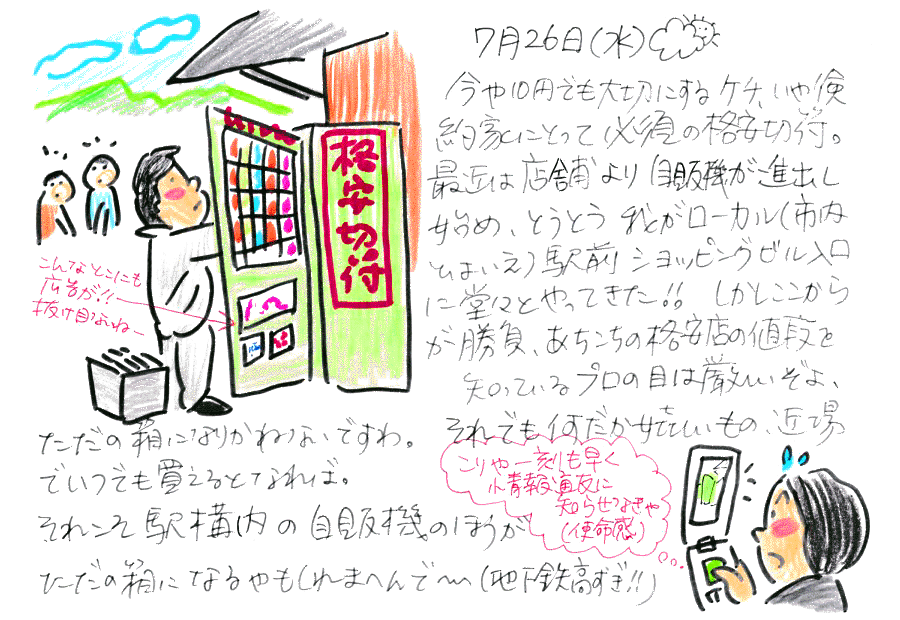 7月26日(水)
今や10円でも大切にするケチ、いや倹
約家にとって必須の格安切符。
最近は店舗より自販機が進出し
始め、とうとう我がローカル(市内
とはいえ)駅前ショッピングビル入口
に堂々とやってきた!! しかしここから
が勝負、あちこちの格安店の値段を
知っているプロの目は厳しいぞよ、
それでも何だか嬉しいもの、近場
でいつでも買えるとなれば。
それこそ駅構内の自販機のほうが
ただの箱になるやもしれまへんで〜(地下鉄高すぎ!!)
ただの箱になりかねないですわ。
格安切符
こんなとこにも
広告が!!
抜け目ないね〜
こりゃ一刻も早く
小情報通友に
知らせなきゃ
(使命感)